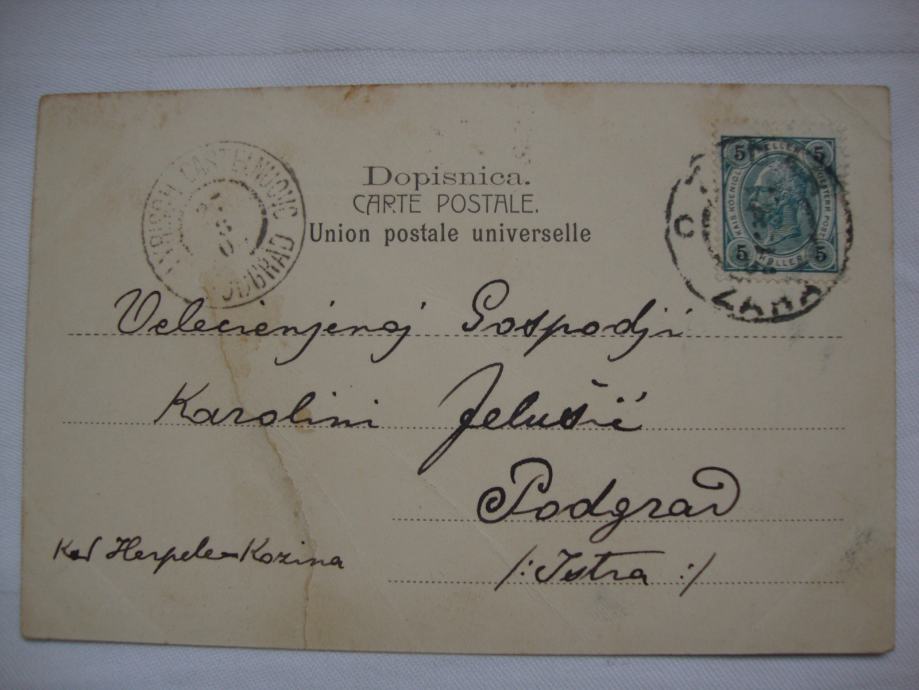 Dopisnica.
CARTE POSTALE.
Union postale universelle
CASTELNUOVO
PODGRAD
5 HELLER 5
KAIS. KOENIGL. OESTERR. POST
5 HELLER 5
ZARA
Velecienjenoj Gospodji
Karolini Jelušić
Podgrad
/: Istra :/
Kod Herpele-Kozina